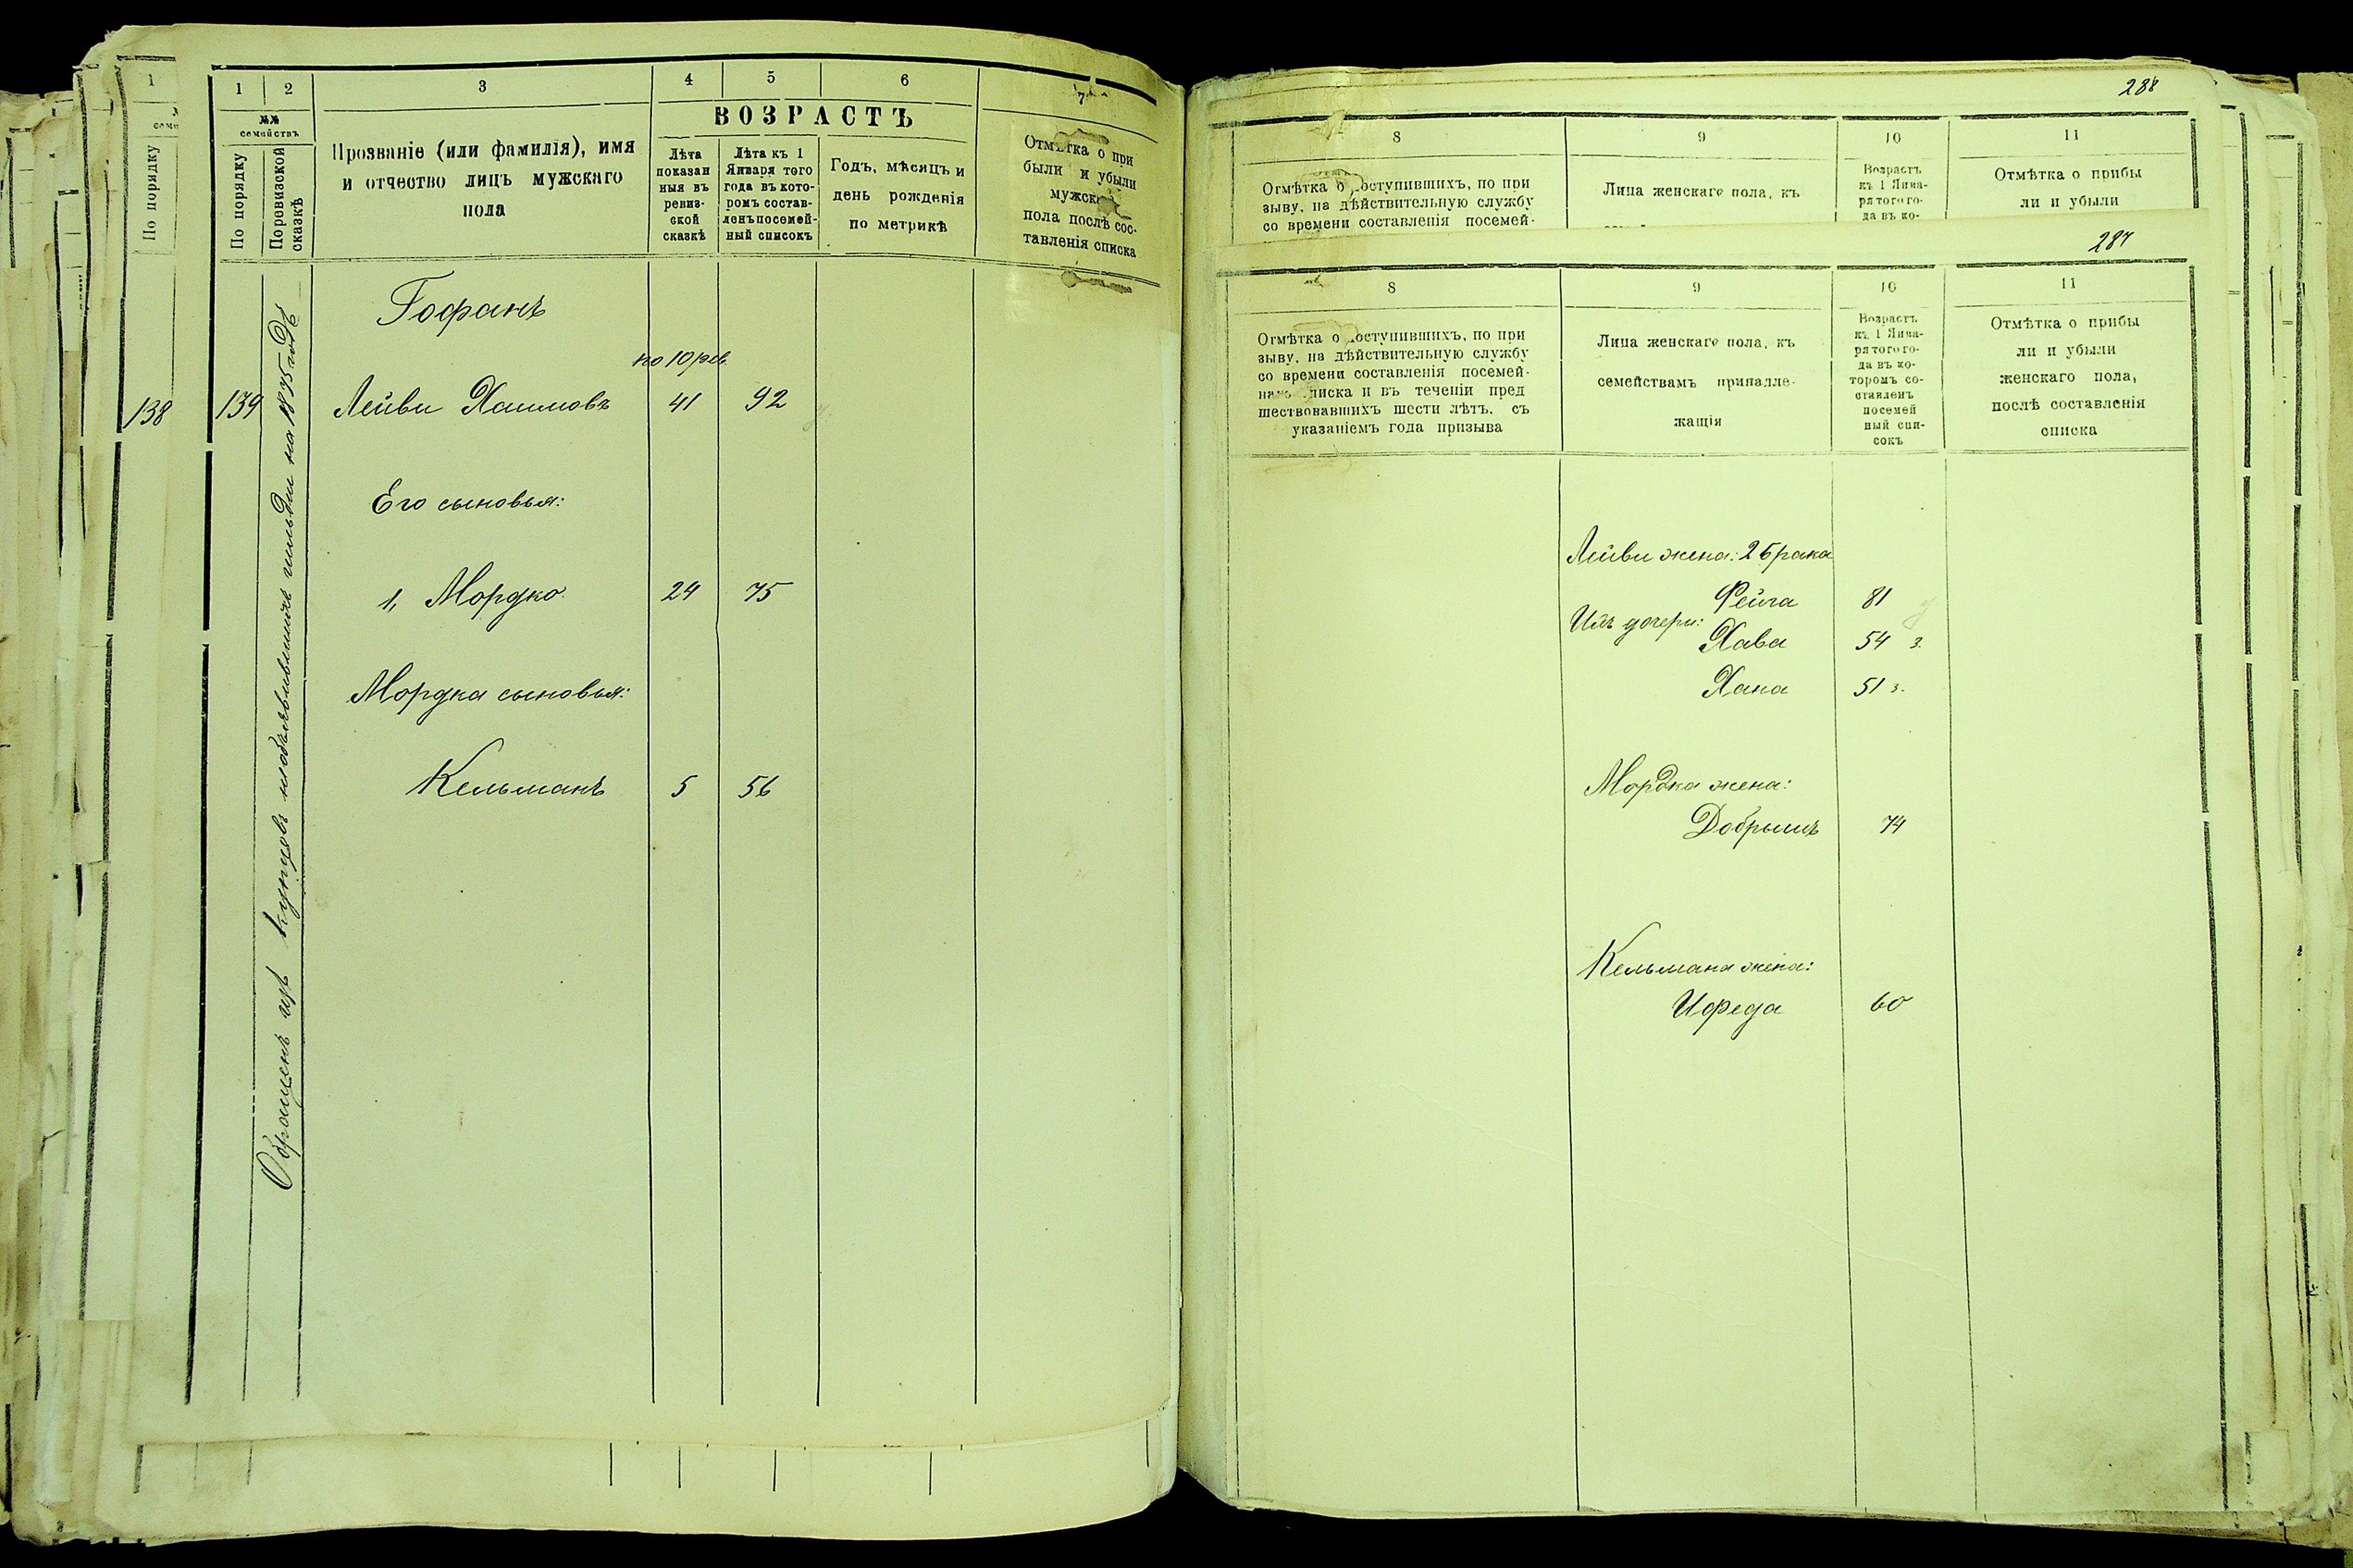 1
По порядку
138
1
2
3
4
5
6
7
№№
семействъ
По порядку
Поревизской
сказкѣ
Прозваніе (или фамилія), имя
и отчество лицъ мужскаго
пола
ВОЗРАСТЪ
Лѣта
показан
ныя въ
ревиз-
ской
сказкѣ
Лѣта къ 1
Января того
года въ кото-
ромъ состав-
ленъ посемей-
ный списокъ
Годъ, мѣсяцъ и
день рожденія
по метрикѣ
Отмѣтка о при
были и убыли
пола послѣ сос-
тавленія списка
Гофанъ
по 10 рев.
139
Лейви Хаимовъ
41
92
Его сыновья:
1, Мордко
24
75
Мордка сыновья:
Кельманъ
5
56
Обращенъ изъ купцовъ на 1895 годъ
288
8
9
10
11
Отмѣтка о поступившихъ, по при
зыву, на дѣйствительную службу
со времени составленія посемей-
Лица женскаго пола, къ
Возрастъ
къ 1 Янва-
ря того го-
да въ ко-
Отмѣтка о прибы
ли и убыли
287
8
9
10
11
Отмѣтка о поступившихъ, по при
зыву, на дѣйствительную службу
со времени составленія посемей-
списка и въ теченіи пред
шествовавшихъ шести лѣтъ, съ
указаніемъ года призыва
Лица женскаго пола, къ
семействамъ принадле-
жащія
Возрастъ
къ 1 Янва-
ря того го-
да въ ко-
торомъ со-
ставленъ
посемей
ный спи-
сокъ
Отмѣтка о прибы
ли и убыли
женскаго пола,
послѣ составленія
списка
Лейви жена: 2 брака
Фейга
81
Ихъ дочери:
Хава
54 з.
Хана
51 з.
Мордка жена:
Добрышъ
74
Кельмана жена:
Ифеда
60